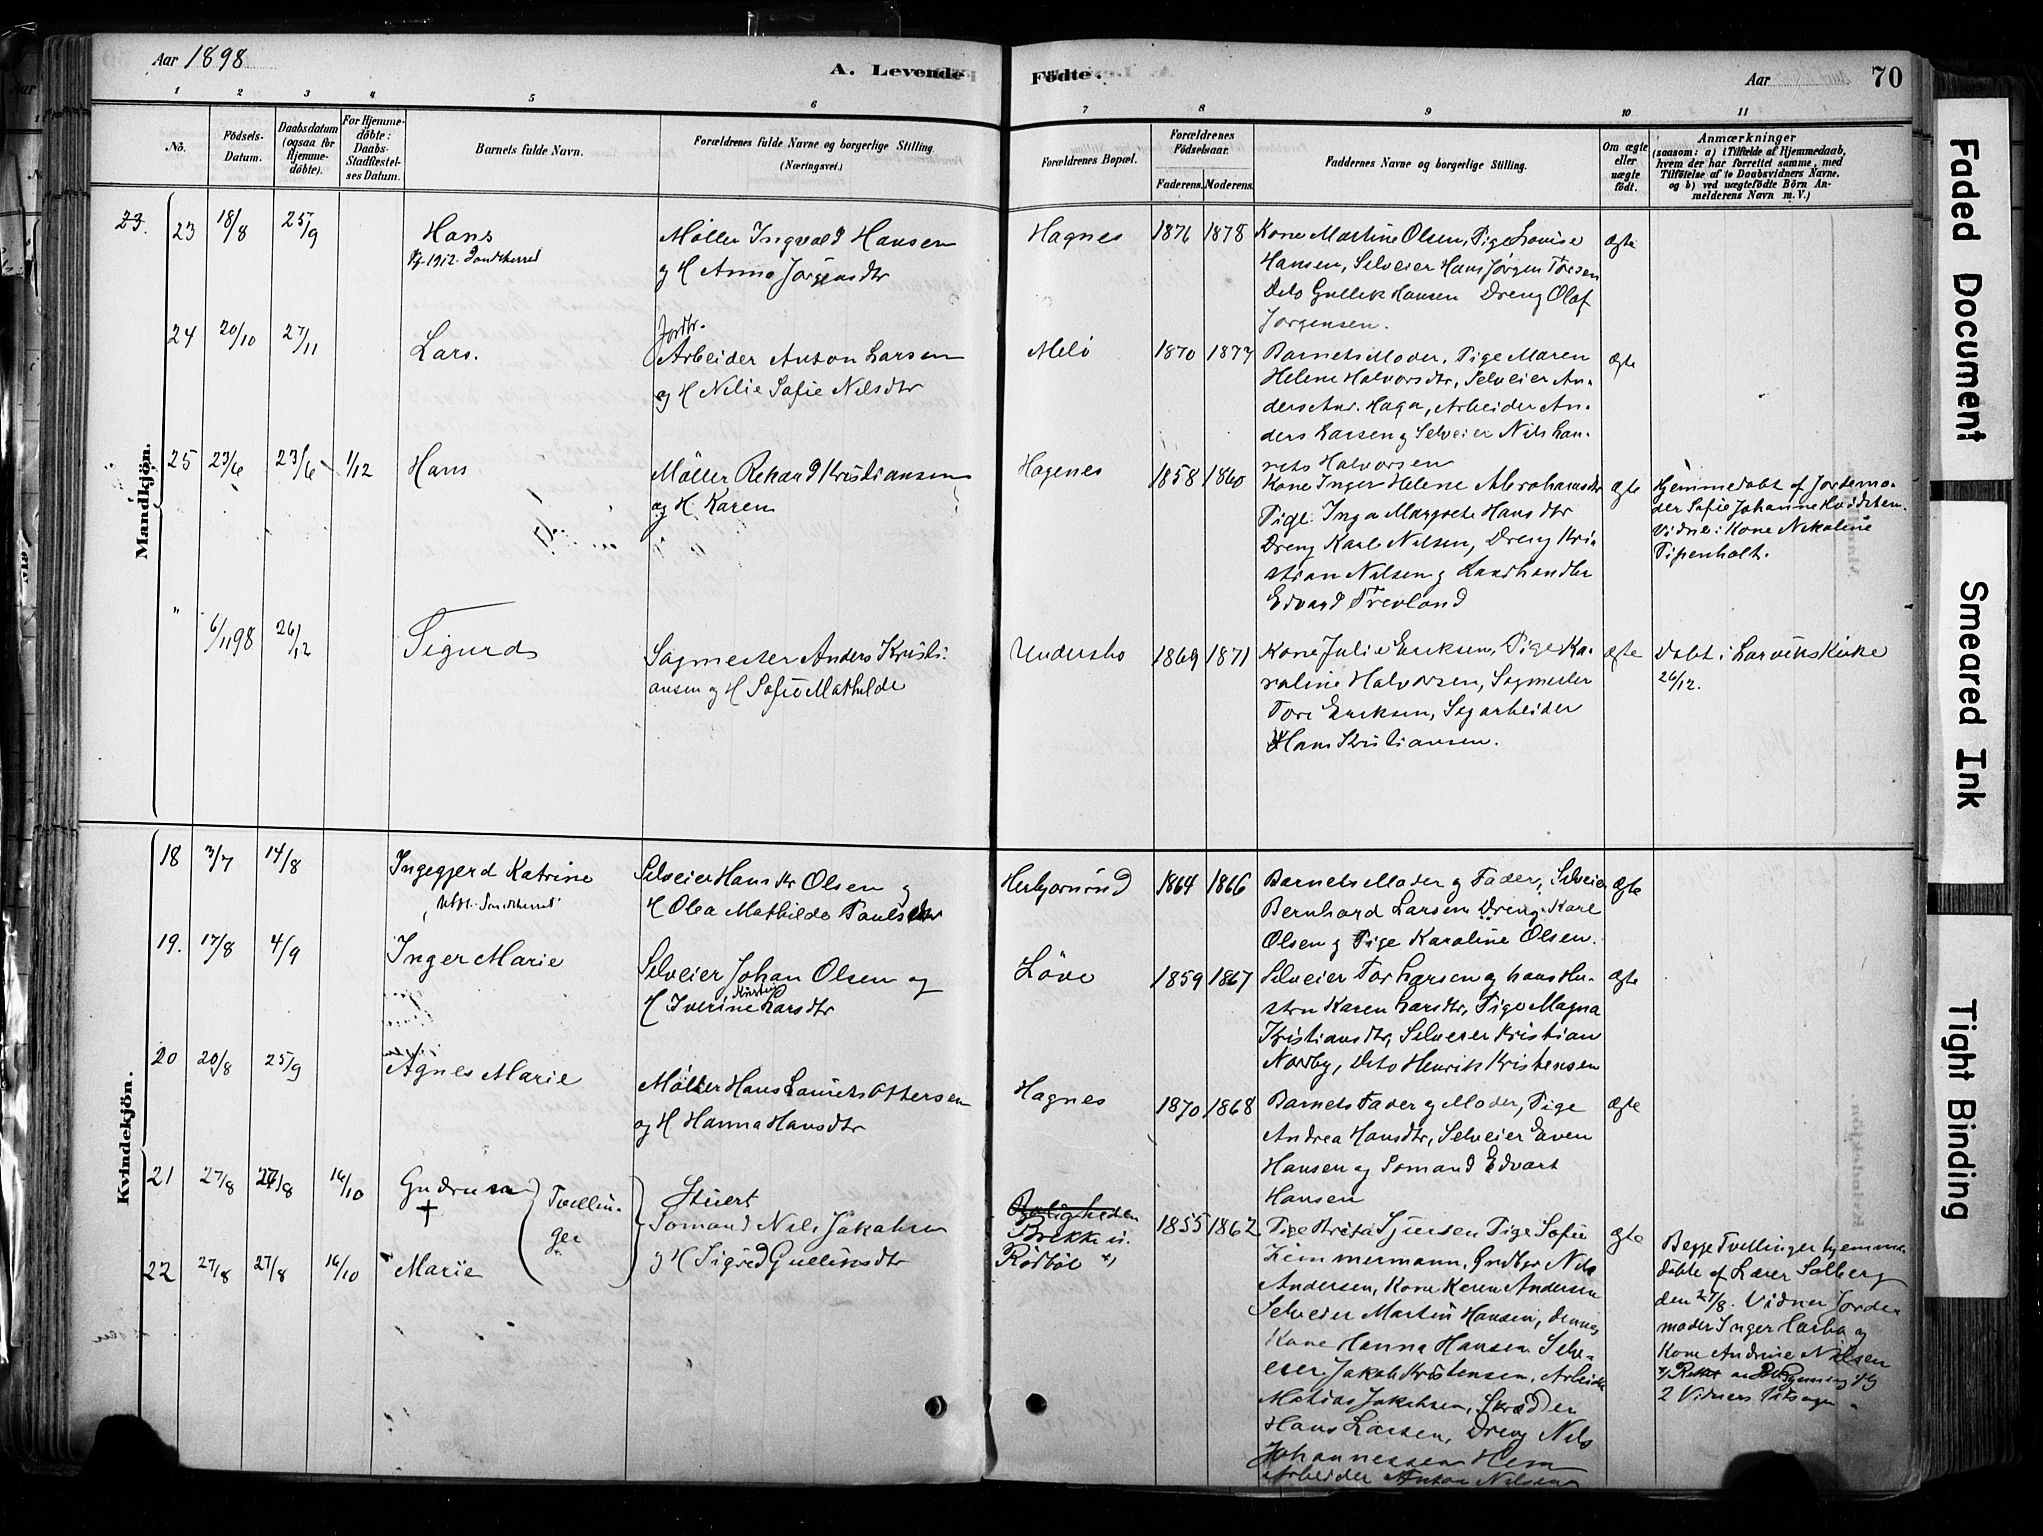 Aar 1898
A. Levende Födte.
Aar
70
1 2 3 4 5 6 7 8 9 10 11
No.
Födsels-Datum.
Daabsdatum (ogsaa for Hjemmedöbte).
For Hjemmedöbte: Daabs-Stadfæstelses Datum.
Barnets fulde Navn.
Forældrenes fulde Navne og borgerlige Stilling. (Næringsvei.)
Forældrenes Bopæl.
Forældrenes Födselsaar.
Faderens. Moderens.
Faddernes Navne og borgerlige Stilling.
Om ægte eller uægte födt.
Anmærkninger
(saasom: a) i Tilfælde af Hjemmedaab, hvem der har forrettet samme, med Tilföielse af to Daabsvidners Navne, og b) ved uægtefödte Börn Anmelderens Navn m. V.)
Mandkjön.
23. 23 18/8 25/9 Hans
1912. Sandeherred
Møller Ingvald Hansen
og H Anna Jörgensdtr
Hagnes 1876 1878
Kone Martine Olsen, Pige Lovise
Hansen, Selveier Hans Jörgen Torsen
Dito Gullik Hansen Dreng Olaf
Jorgensen.
ægte
24 20/10 27/11 Lars.
Jordbr.
Arbeider Anton Larsen
og H Nilie Sofie Nilsdtr
Melö 1870 1877
Barnets Moder, Pige Maren
Helene Halvorsdtr, Selveier An-
ders Haga, Arbeider An-
ders Larsen og Selveier Nils Lau-
rits Halvorsen
ægte
25 23/6 23/6 1/12 Hans
Möller Rikard Kristiansen
og H Karen
Hagenes 1858 1860
Kone Inger Helene Abrahamsdtr
Pige Inga Margrete Hansdtr
Dreng Karl Nilsen, Dreng Kri-
stian Nilsen og Landhandler
Edvard Trevland
ægte
Hjemmedöbt af Jordemo-
der Sofie Johanne
Vidne: Kone Nikoline
Pipenholt.
" 6/11 98 26/12 Sigurd
Sagmester Anders Kristi-
ansen og H Sofie Mathilde
Undersbo 1869 1871
Kone Julie Eriksen, Pige Ka-
roline Halvorsen, Sagmester
Tore Eriksen, Sagarbeider
Hans Kristiansen.
ægte
Döbt i Larviks Kirke
26/12.
Kvindekjön.
18 3/7 14/8 Ingegjerd Katrine
Sandeherred
Selveier Hans Kr Olsen og
H Olea Mathilde Paulsdtr
Herbjörnröd 1864 1866
Barnets Moder og Fader, Selveier
Bernhard Larsen Dreng Karl
Olsen og Pige Karoline Olsen.
ægte
19. 17/8 4/9 Inger Marie
Selveier Johan Olsen og
H Iverine Kirstine Larsdtr
Löve 1859 1867
Selveier Tor Larsen og hans Hu-
stru Karen Larsdtr, Pige Magna
Kristiansdtr, Selveier Kristian
Nordby, Dito Henrik Kristensen
ægte
20 20/8 25/9 Agnes Marie
Møller Hans Laurits Ottersen
og H Hanna Hansdtr
Hagnes 1870 1868
Barnets Fader og Moder, Pige
Andrea Hansdtr, Selveier Even
Hansen og Sömand Edvart
Hansen
ægte
21 27/8 27/8 16/10 Gudrun
22 27/8 27/8 16/10 Marie
Tvillin-
ger
Stuert
Sömand Nils Jakobsen
og H Sigrid Gullinsdtr
Brekke u.
Rödböl x)
1855 1862
Pige Sjursen Pige Sofie
Zimmermann, Gudbr Nils
Andersen, Kone Karen Andersen
Selveier Martin Hansen, dennes
Kone Hanna Hansen Selv-
eier Jakob Kristensen, Arbeider
Matias Jakobsen, Skrædder
Hans Larsen, Dreng Nils
Johannessen Hem
Arbeider Anton Nilsen
ægte
Begge Tvillinger hjemme-
döbte af Lærer Solberg
den 27/8. Vidner Jorde-
moder Inger og
Kone Andrine Nilsen
2 Vidners Udsagn.
Faded Document
Smeared Ink
Tight Binding